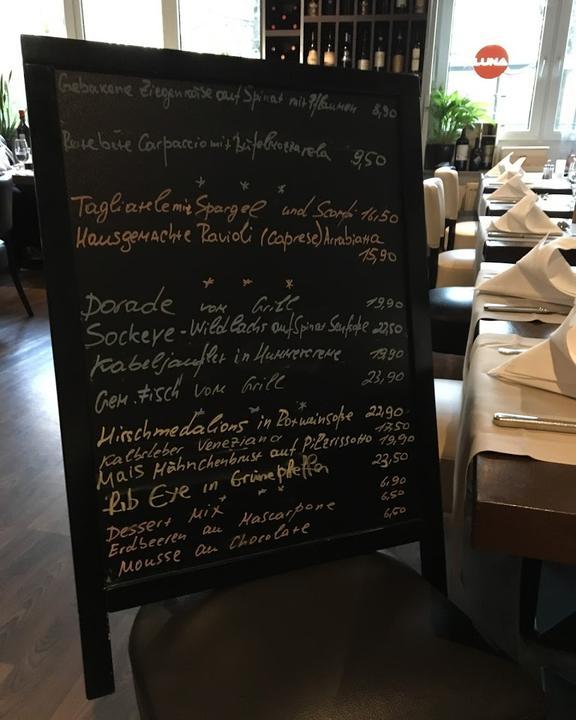 LUNA
Gebakene Ziegenkäse auf Spinat mit Pflaumen 8,90
Rote bite Carpaccio mit Büfelmozzarela 9,50
* * *
Tagliatelle mit Spargel und Scampi 16,50
Hausgemachte Ravioli (Caprese) Arrabiata
15,90
* * *
Dorade vom Grill 19,90
Sockeye-Wildlachs auf Spinat 22,50
Kabeljaufilet in Hummercreme 19,90
Gem. Fisch vom Grill 23,90
* * *
Hirschmedalions in Rotweinsoße 22,90
Kalbsleber Veneziana 17,50
Mais Hähnchenbrust auf Pilzrissotto 19,90
Rib Eye in Grünepfeffa 23,50
* * *
Dessert Mix 6,90
Erdbeeren an Mascarpone 6,50
Mousse au Chocolate 6,50